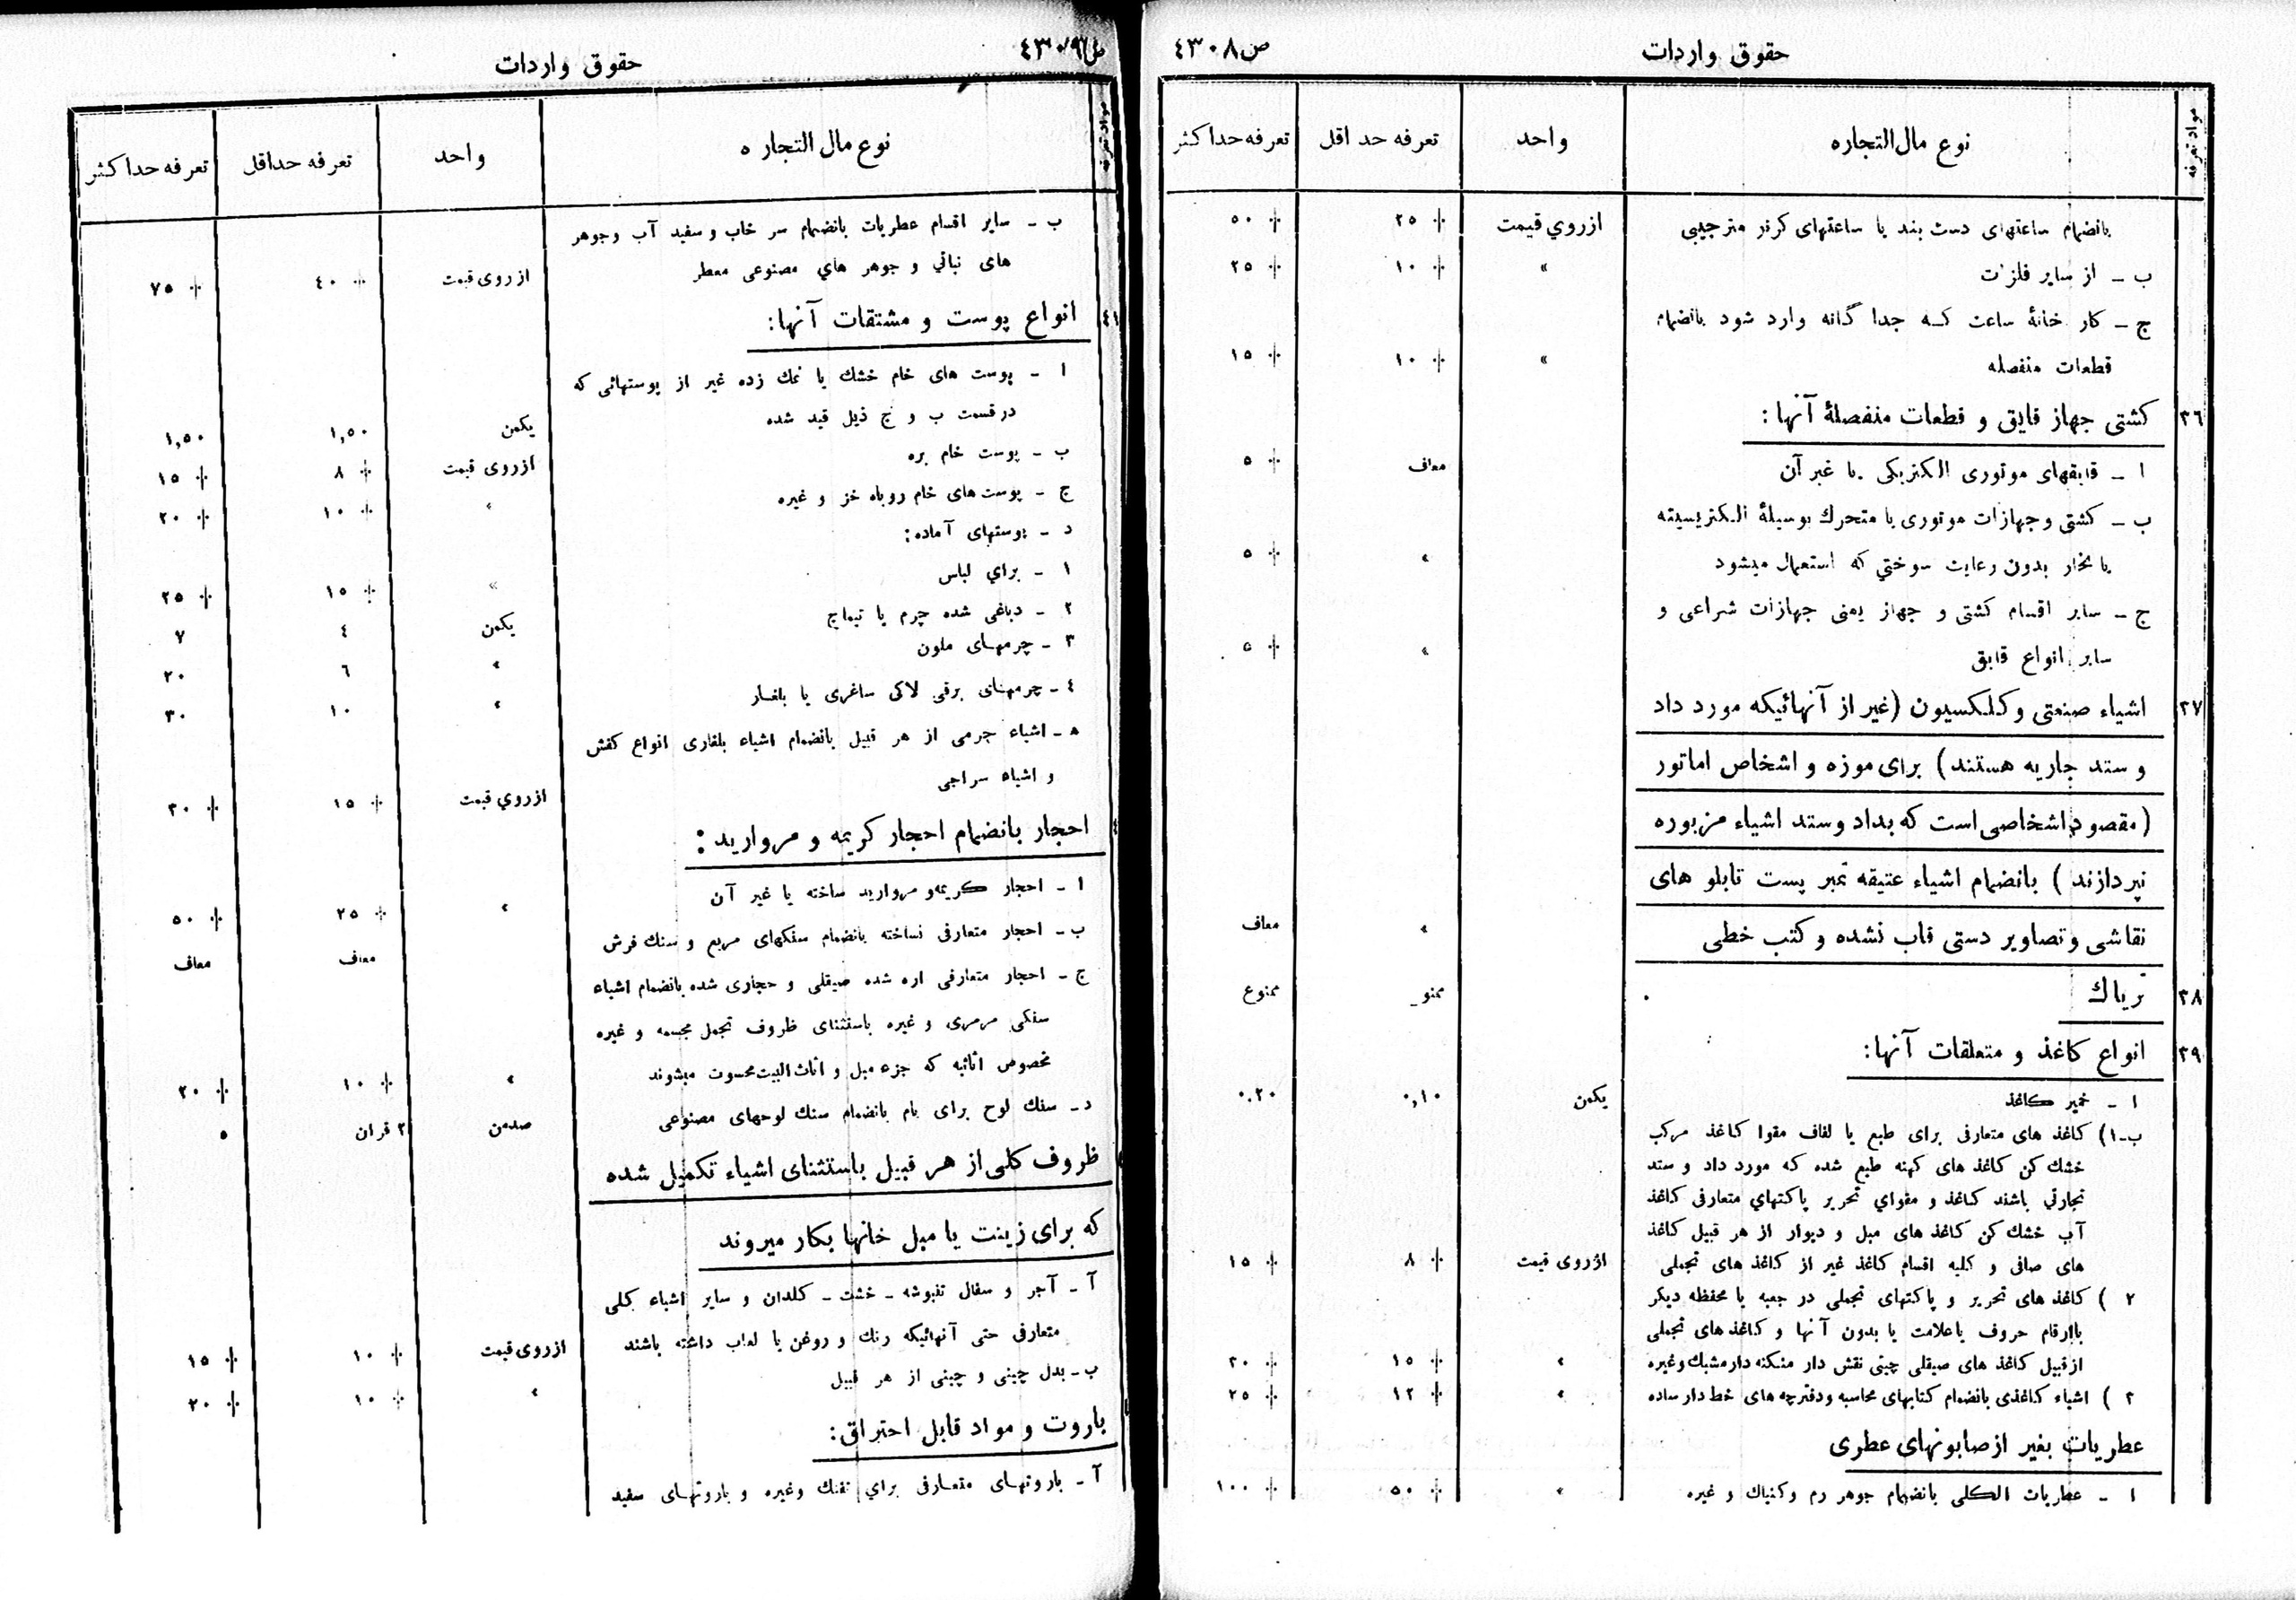 حقوق واردات ص ٤٣٠٨
مواد تعرفه نوع مال‌التجاره واحد تعرفه حد اقل تعرفه حداکثر
بانضمام ساعتهای دست بند یا ساعتهای کرنر متر جیبی ازروي قیمت ٢٥ ٪ ٥٠ ٪
ب ـ از سایر فلزات » ١٠ ٪ ٢٥ ٪
ج ـ کار خانهٔ ساعت که جدا گانه وارد شود بانضمام
قطعات منفصله » ١٠ ٪ ١٥ ٪
٣٦ کشتی جهاز قایق و قطعات منفصلهٔ آنها :
١ ـ قایقهای موتوری الکتریکی یا غیر آن معاف ٥ ٪
ب ـ کشتی و جهازات موتوری یا متحرك بوسیلهٔ الکتریسیته
یا بخار بدون رعایت سوختي که استعمال میشود » ٥ ٪
ج ـ سایر اقسام کشتی و جهاز یعنی جهازات شراعی و
سایر انواع قایق » ٥ ٪
٣٧ اشیاء صنعتی و کلکسیون (غیر از آنهائیکه مورد داد
و ستد جاریه هستند) برای موزه و اشخاص اماتور
(مقصود اشخاصی است که بداد وستد اشیاء مزبوره
نپردازند ) بانضمام اشیاء عتیقه تمبر پست تابلو های
نقاشی و تصاویر دستی قاب نشده و کتب خطی » معاف
٣٨ تریاك ممنو ممنوع
٣٩ انواع کاغذ و متعلقات آنها:
١ ـ خمیر کاغذ یکمن ٠,١٠ ٠.٢٠
ب‌ـ١) کاغذ های متعارفی برای طبع یا لفاف مقوا کاغذ مرکب
خشك کن کاغذ های کهنه طبع شده که مورد داد و ستد
تجارتي باشند کاغذ و مقواي تحریر پاکتهاي متعارفی کاغذ
آب خشك کن کاغذ های مبل و دیوار از هر قبیل کاغذ
های صافی و کلیه اقسام کاغذ غیر از کاغذ های تجملی ازروی قیمت ٨ ٪ ١٥ ٪
٢ ) کاغذ های تحریر و پاکتهای تجملی در جعبه یا محفظه دیگر
باارقام حروف یاعلامت یا بدون آنها و کاغذ های تجملی
ازقبیل کاغذ های صیقلی چینی نقش دار منگنه دار مشبك وغیره » ١٥ ٪ ٣٠ ٪
٣ ) اشیاء کاغذی بانضمام کتابهای محاسبه ودفترچه های خط دار ساده » ١٢ ٪ ٢٥ ٪
عطریات بغیر از صابونهای عطری
١ ـ عطریات الکلی بانضمام جوهر رم وکنیاك و غیره » ٥٠ ٪ ١٠٠ ٪
حقوق واردات ص ٤٣٠٩
مواد تعرفه نوع مال التجاره واحد تعرفه حداقل تعرفه حداکثر
ب ـ سایر اقسام عطریات بانضمام سر خاب و سفید آب وجوهر
های نباتي و جوهر هاي مصنوعی معطر ازروی قیمت ٤٠ ٪ ٧٥ ٪
٤١ انواع پوست و مشتقات آنها:
١ ـ پوست های خام خشك یا نمك زده غیر از پوستهائی که
درقسمت ب و ج ذیل قید شده یکمن ١,٥٠ ١,٥٠
ب ـ پوست خام بره ازروی قیمت ٨ ٪ ١٥ ٪
ج ـ پوست‌های خام روباه خز و غیره » ١٠ ٪ ٢٠ ٪
د ـ پوستهای آماده:
١ ـ براي لباس » ١٥ ٪ ٢٥ ٪
٢ ـ دباغی شده چرم یا تیماج یکمن ٤ ٧
٣ ـ چرمهای ملون » ٦ ٢٠
٤ ـ چرمهای برقی لاکی ساغری یا بلغار » ١٠ ٣٠
ه ـ اشیاء چرمی از هر قبیل بانضمام اشیاء بلغاری انواع کفش
و اشیاء سراجی ازروي قیمت ١٥ ٪ ٣٠ ٪
احجار بانضمام احجار کریمه و مروارید :
١ ـ احجار کریمه‌و مروارید ساخته یا غیر آن » ٢٥ ٪ ٥٠ ٪
ب ـ احجار متعارفی نساخته بانضمام سنگهای مربع و سنك فرش معاف معاف
ج ـ احجار متعارفی اره شده صیقلی و حجاری شده بانضمام اشیاء
سنگی مرمری و غیره باستثنای ظروف تجمل مجسمه و غیره
مخصوص اثاثیه که جزء مبل و اثاث البیت محسوب میشوند » ١٠ ٪ ٢٠ ٪
د ـ سنك لوح برای بام بانضمام سنك لوحهای مصنوعی صدمن ٢ قران ٥
ظروف کلی از هر قبیل باستثنای اشیاء تکمیل شده
که برای زینت یا مبل خانها بکار میروند
آ ـ آجر و سفال تنبوشه ـ خشت ـ کلدان و سایر اشیاء کلی
متعارفی حتی آنهائیکه رنك و روغن یا لعاب داشته باشند ازروی قیمت ١٠ ٪ ١٥ ٪
ب ـ بدل چینی و چینی از هر قبیل » ١٠ ٪ ٢٠ ٪
باروت و مواد قابل احتراق:
آ ـ باروتهای متعارفی براي تفنك وغیره و باروتهای سفید